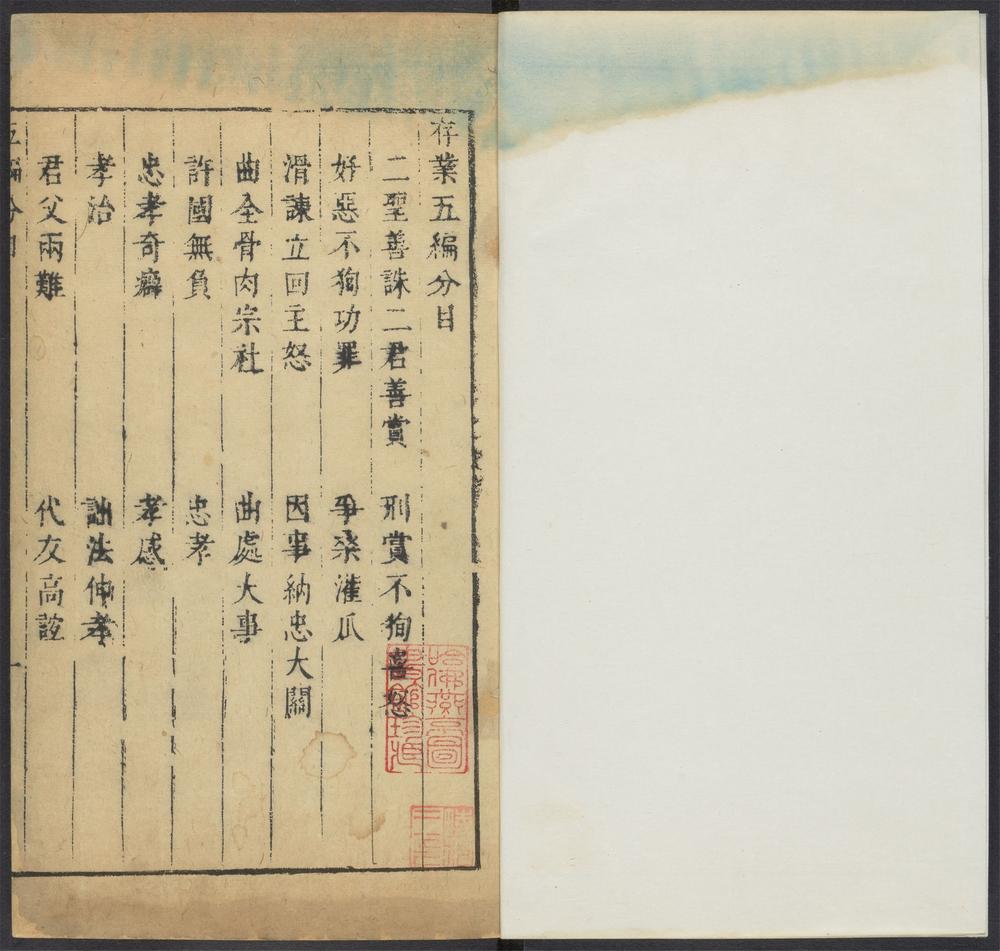 存業五編分目
二聖善誅二君善賞 刑賞不狥喜怒
好惡不狥功罪 爭桑灌瓜
滑諫立回主怒 因事納忠大關
曲全骨肉宗社 曲處大事
許國無負 忠孝
忠孝奇癖 孝感
孝治 詘法伸孝
君父兩難 代友高誼
五編分目 一
哈佛燕京圖
書館珍藏